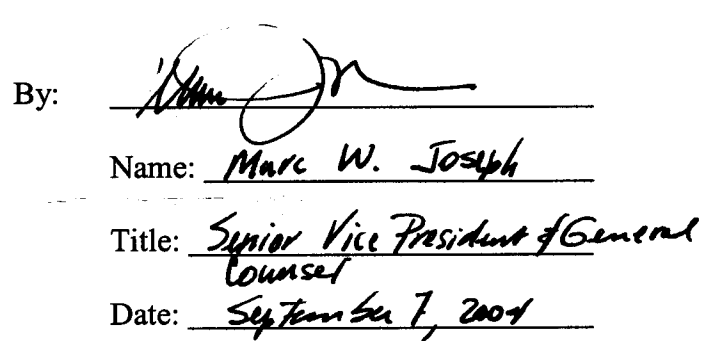 By:
Name: Marc W. Joseph
Title: Senior Vice President & General
Counsel
Date: September 7, 2004